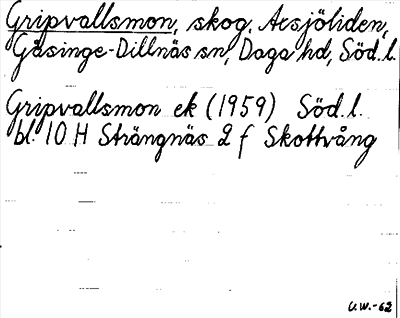 Gripvallsmon, skog, Aesjöliden,
Gåsinge-Dillnäs sn, Daga hd, Söd. l.
Gripvallsmon ek (1959) Söd. l.
bl. 10 H Strängnäs 2 f Skottvång
U.W.-62